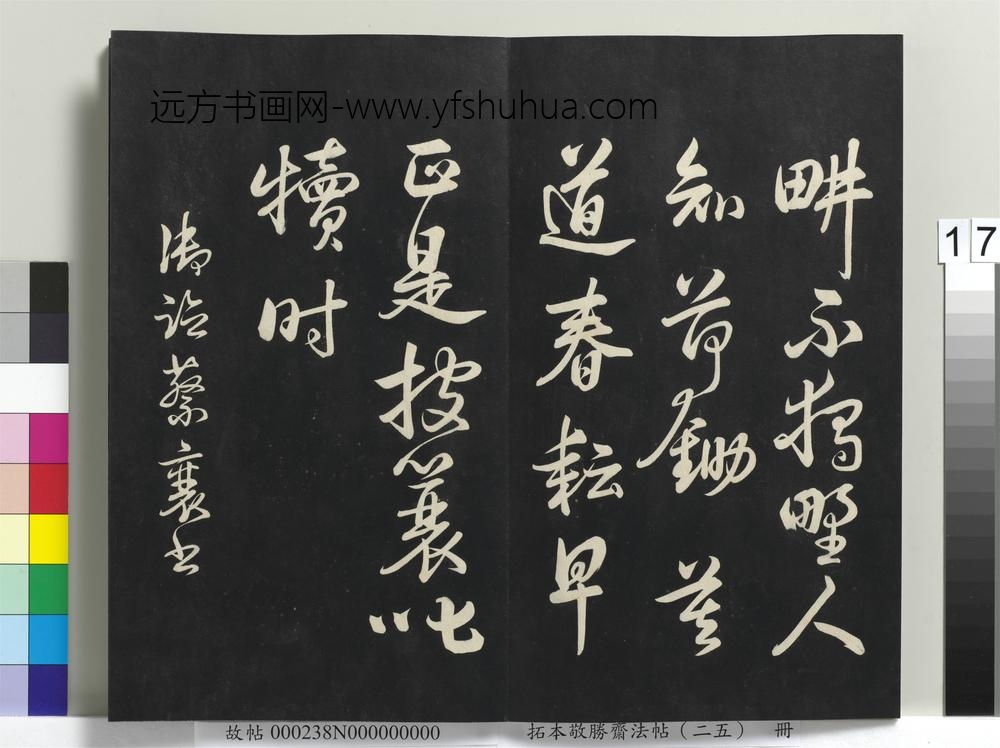 远方书画网-www.yfshuhua.com
畊不獨野人
知荷鋤莫
道春耘早
正是披蓑叱
犢时
蔡襄书
17
故帖 000238N000000000
拓本敬勝齋法帖（二五） 冊